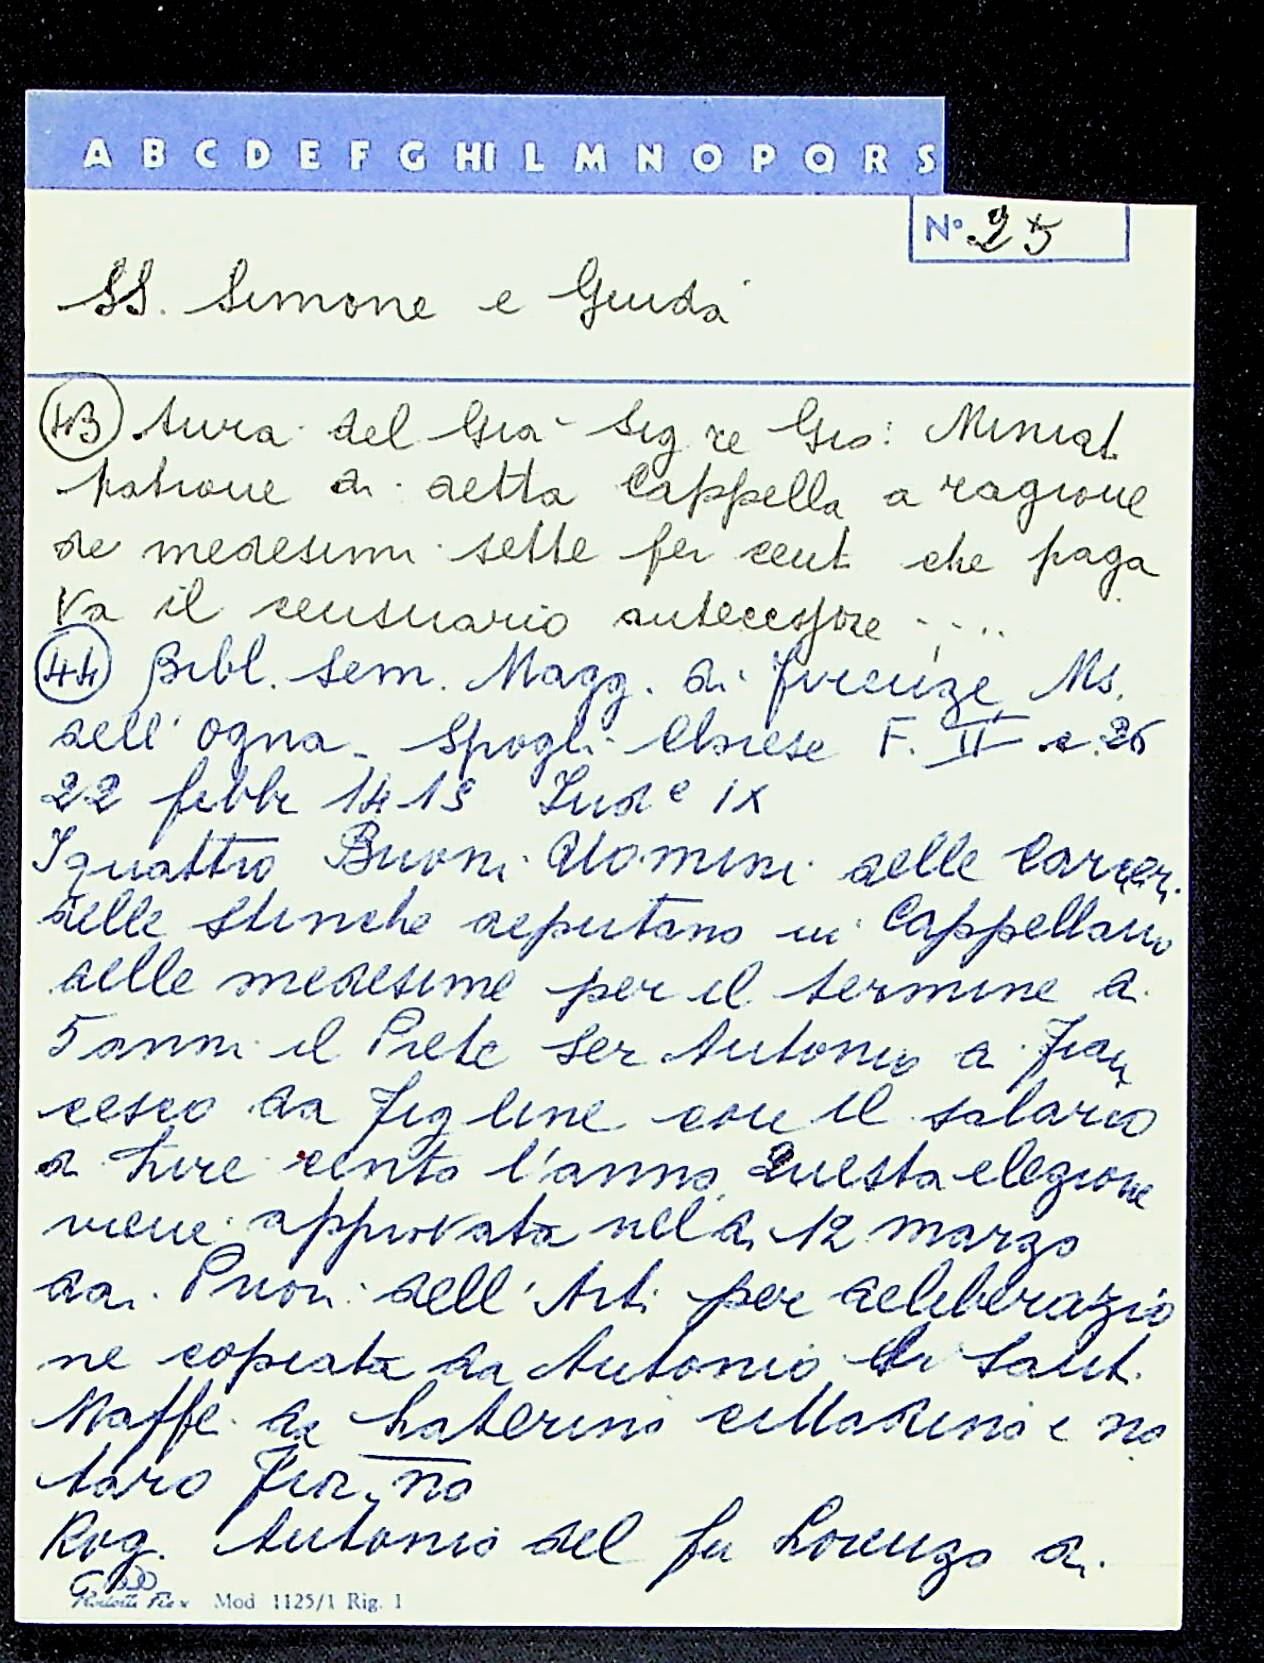 A B C D E F G HI L M N O P Q R S
N° 25
SS. Simone e Giuda
43 tura del Già Sig re Gio: Miniat
patrone di detta Cappella a ragione
de medesimi sette per cent che paga
va il censuario antecessore .....
44 Bibl. Sem. Magg. di Firenze Ms.
dell'Ogna - Spogli Chiese F. II c. 26
22 febbr 1415 Ind e IX
I quattro Buoni Uomini delle Carceri
delle Stinche deputano in Cappellano
delle medesime per il termine di
5 anni il Prete Ser Antonio di Fran
cesco da Figline con il salario
di Lire cento l'anno. Questa elezione
viene approvata nel di 12 marzo
dai Priori dell'Arti per deliberazio
ne copiata da Antonio di Sant.
Maffei da Laterino cittadino e no
taro Fior. no
Rog. Antonio del fu Lorenzo di
Mod 1125/1 Rig. 1